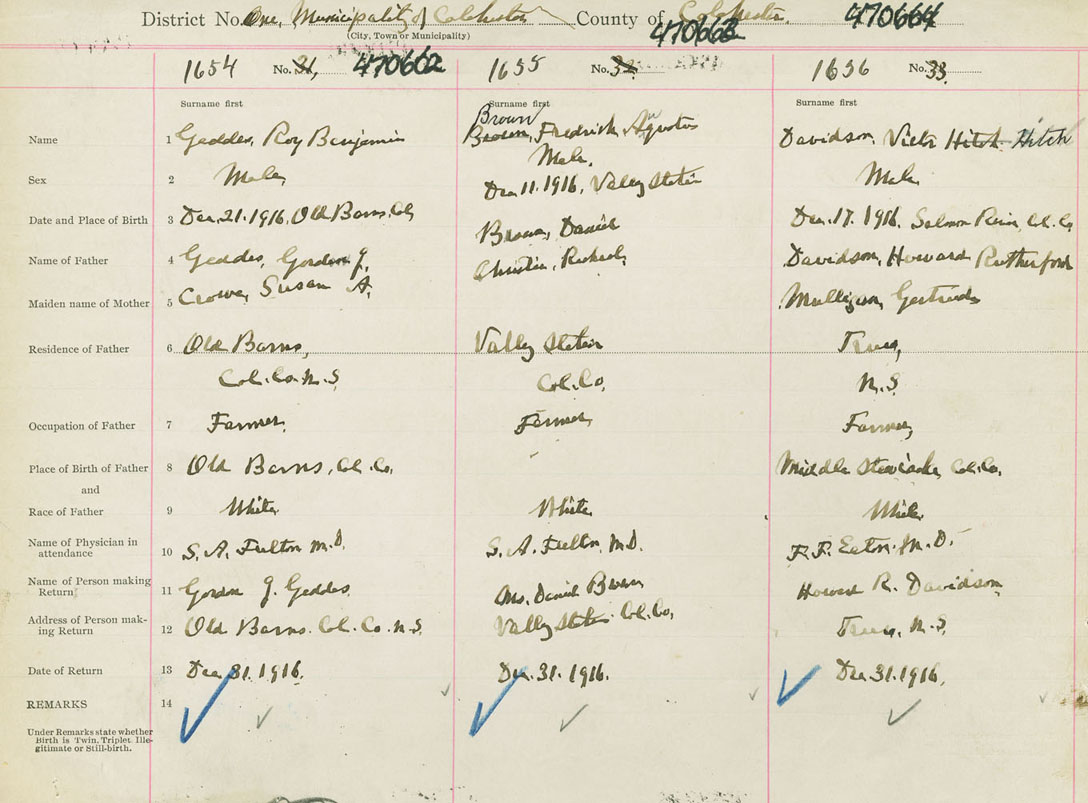 District No. One, Municipality of Colchester County of Colchester.
(City, Town or Municipality)
470664
470663
1654 No. 31, 470662
1655 No. 32
1656 No. 33
Surname first
Surname first
Surname first
Name 1 Geddes, Roy Benjamin
Brown
Brown, Fredrick Agustus
Davidson, Victor Hitch Hitch
Sex 2 Male,
Male.
Male
Date and Place of Birth 3 Dec. 21. 1916. Old Barns. Col
Dec. 11. 1916, Valley Station
Dec. 17. 1916. Salmon River, Col. Co.
Name of Father 4 Geddes, Gordon J,
Brown, Daniel
Davidson, Howard Rutherford
Maiden name of Mother 5 Crowe, Susan A,
Christie, Rachel,
Mulligan, Gertrude
Residence of Father 6 Old Barns,
Valley Station
Truro,
Col. Co. N.S.
Col. Co,
N.S
Occupation of Father 7 Farmer,
Farmer,
Farmer,
Place of Birth of Father 8 Old Barns, Col. Co,
Middle Stewiacke, Col. Co.
and
Race of Father 9 White
White
White
Name of Physician in
attendance 10 S. A. Fulton M.D.
S. A. Fulton, M.D.
F. F. Eaton. M.D.
Name of Person making
Return 11 Gordon J. Geddes
Mrs. Daniel Brown
Howard R. Davidson
Address of Person mak-
ing Return 12 Old Barns. Col. Co. N.S.
Valley Station Col. Co,
Truro, N.S
Date of Return 13 Dec 31. 1916.
Dec. 31. 1916.
Dec 31. 1916.
REMARKS 14
Under Remarks state whether
Birth is Twin, Triplet, Ille-
gitimate or Still-birth.